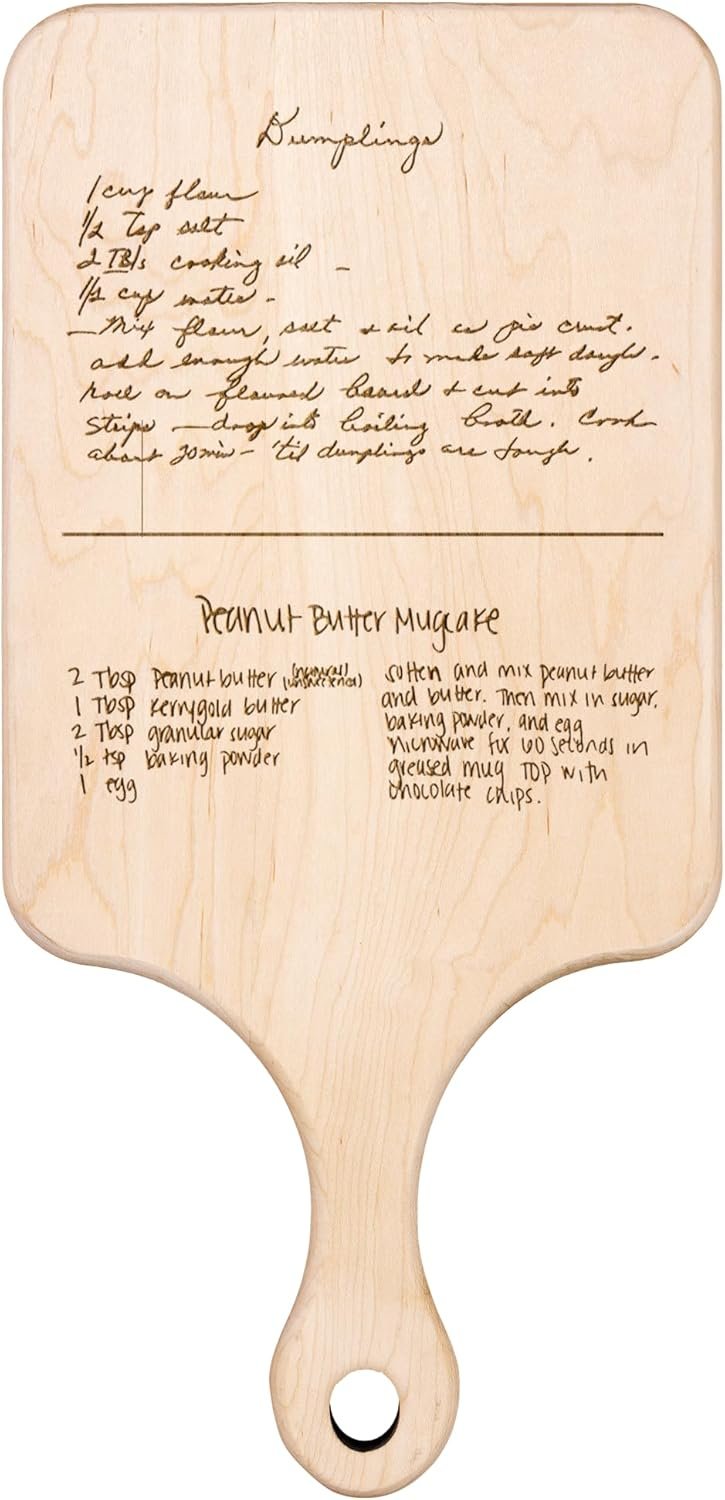 Dumplings
1 cup flour
1/2 Tsp salt
2 TB/s cooking oil –
1/2 cup water -
– Mix flour, salt & oil as pie crust.
add enough water to make soft dough.
Roll on floured board & cut into
strips – drop into boiling broth. Cook
about 20 min – 'til dumplings are tough.
Peanut Butter Mugcake
2 Tbsp Peanut butter (natural/unsweetened)
1 Tbsp Kerrygold butter
2 Tbsp granular sugar
1/2 tsp baking powder
1 egg
Soften and mix peanut butter
and butter. Then mix in sugar,
baking powder, and egg
microwave for 60 seconds in
greased mug TOP with
chocolate chips.